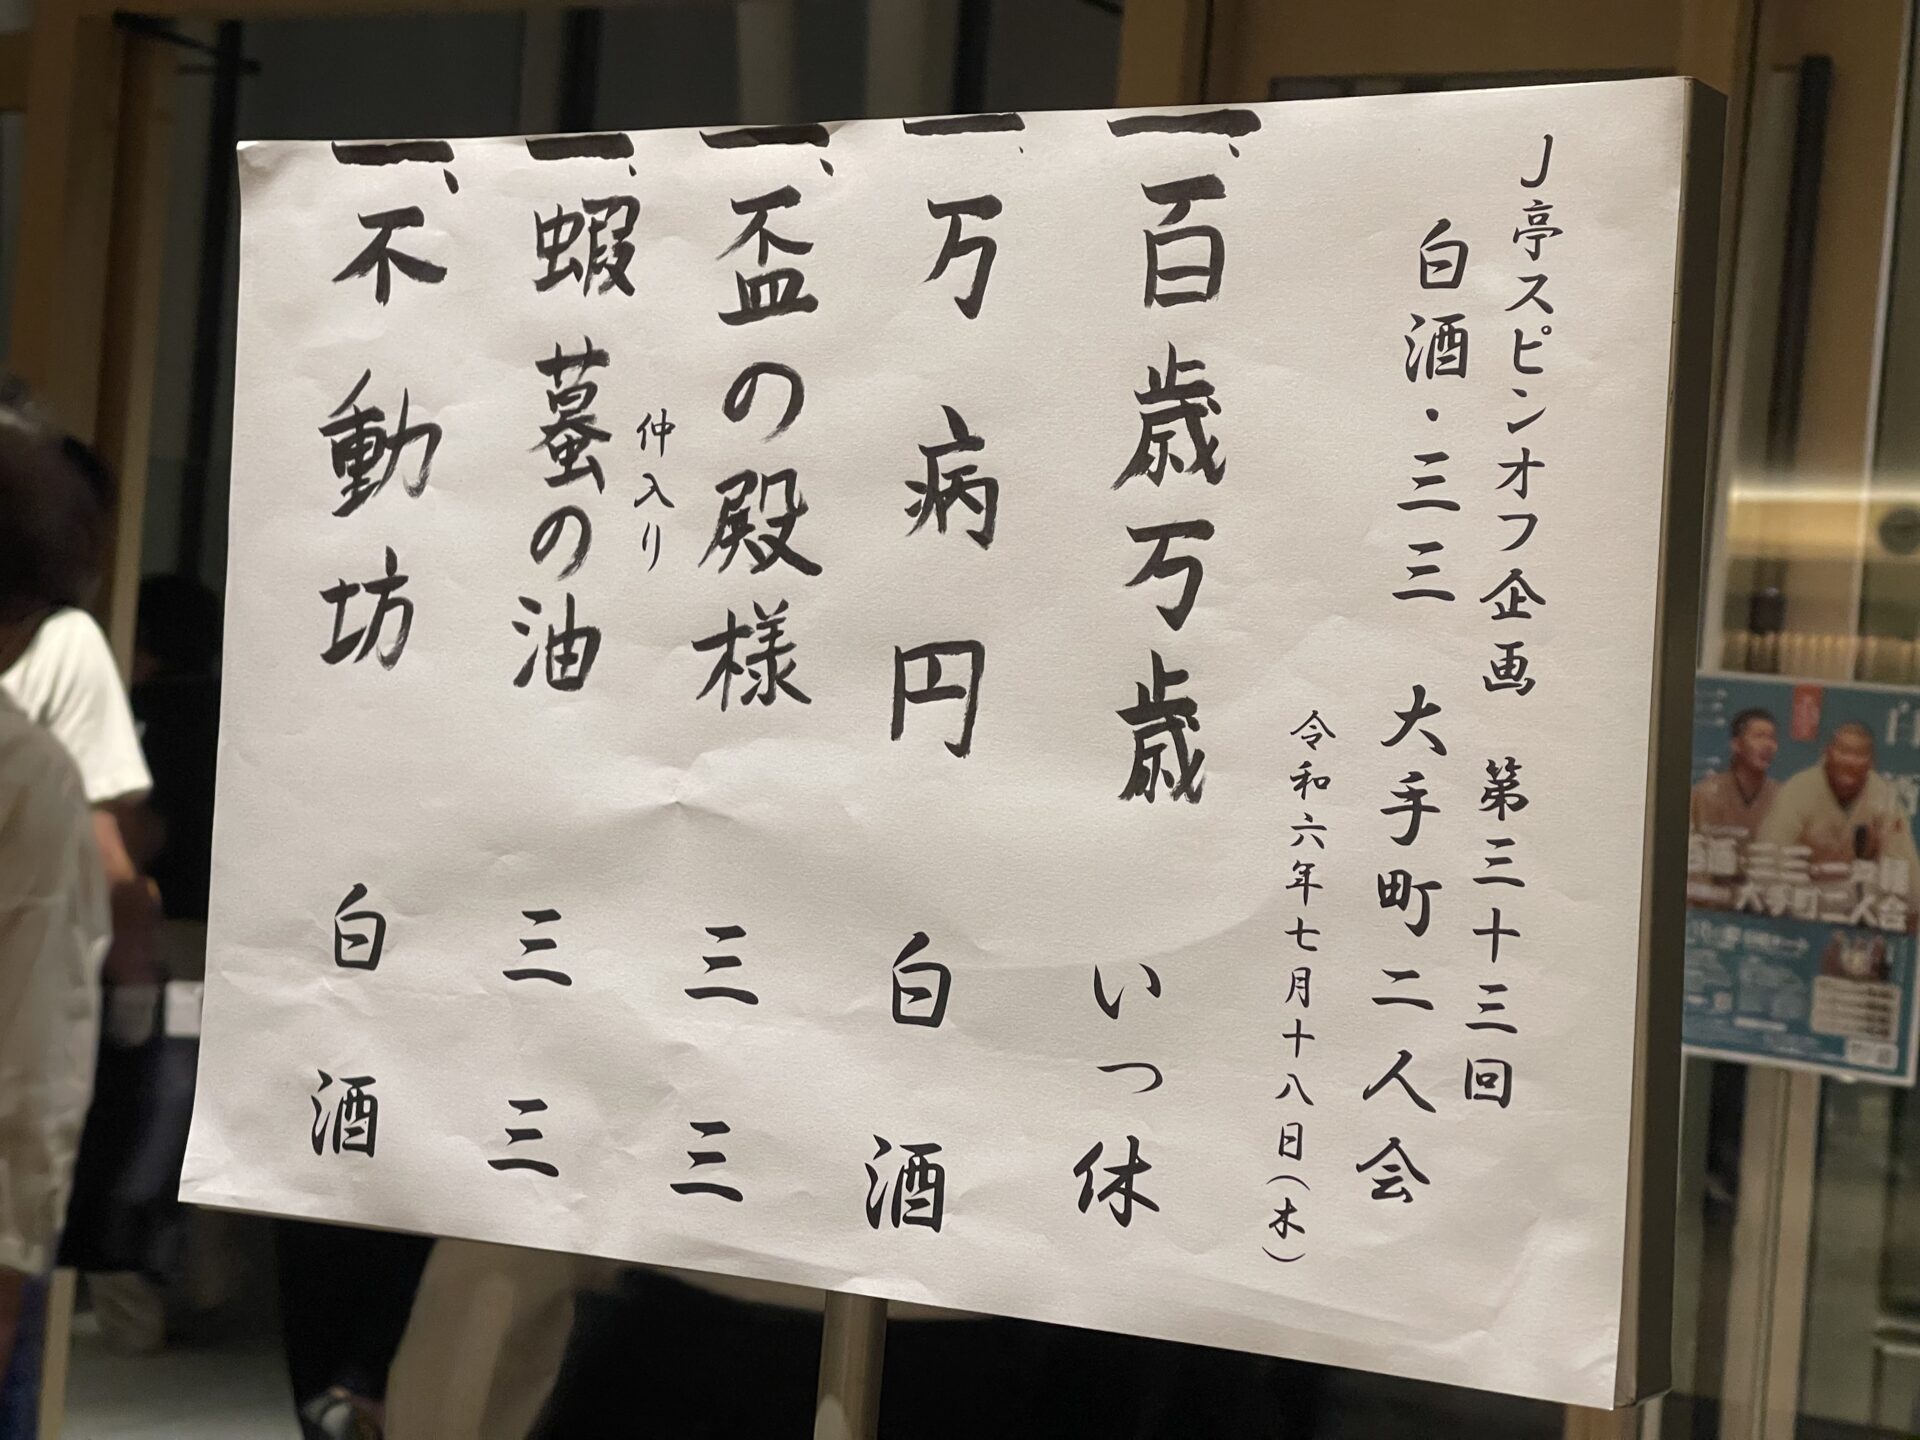 J亭スピンオフ企画 第三十三回
白酒・三三 大手町二人会
令和六年七月十八日(木)
一、百歳万歳 いっ休
一、万病円 白酒
一、盃の殿様 三三
仲入り
一、蝦蟇の油 三三
一、不動坊 白酒
大手町二人会